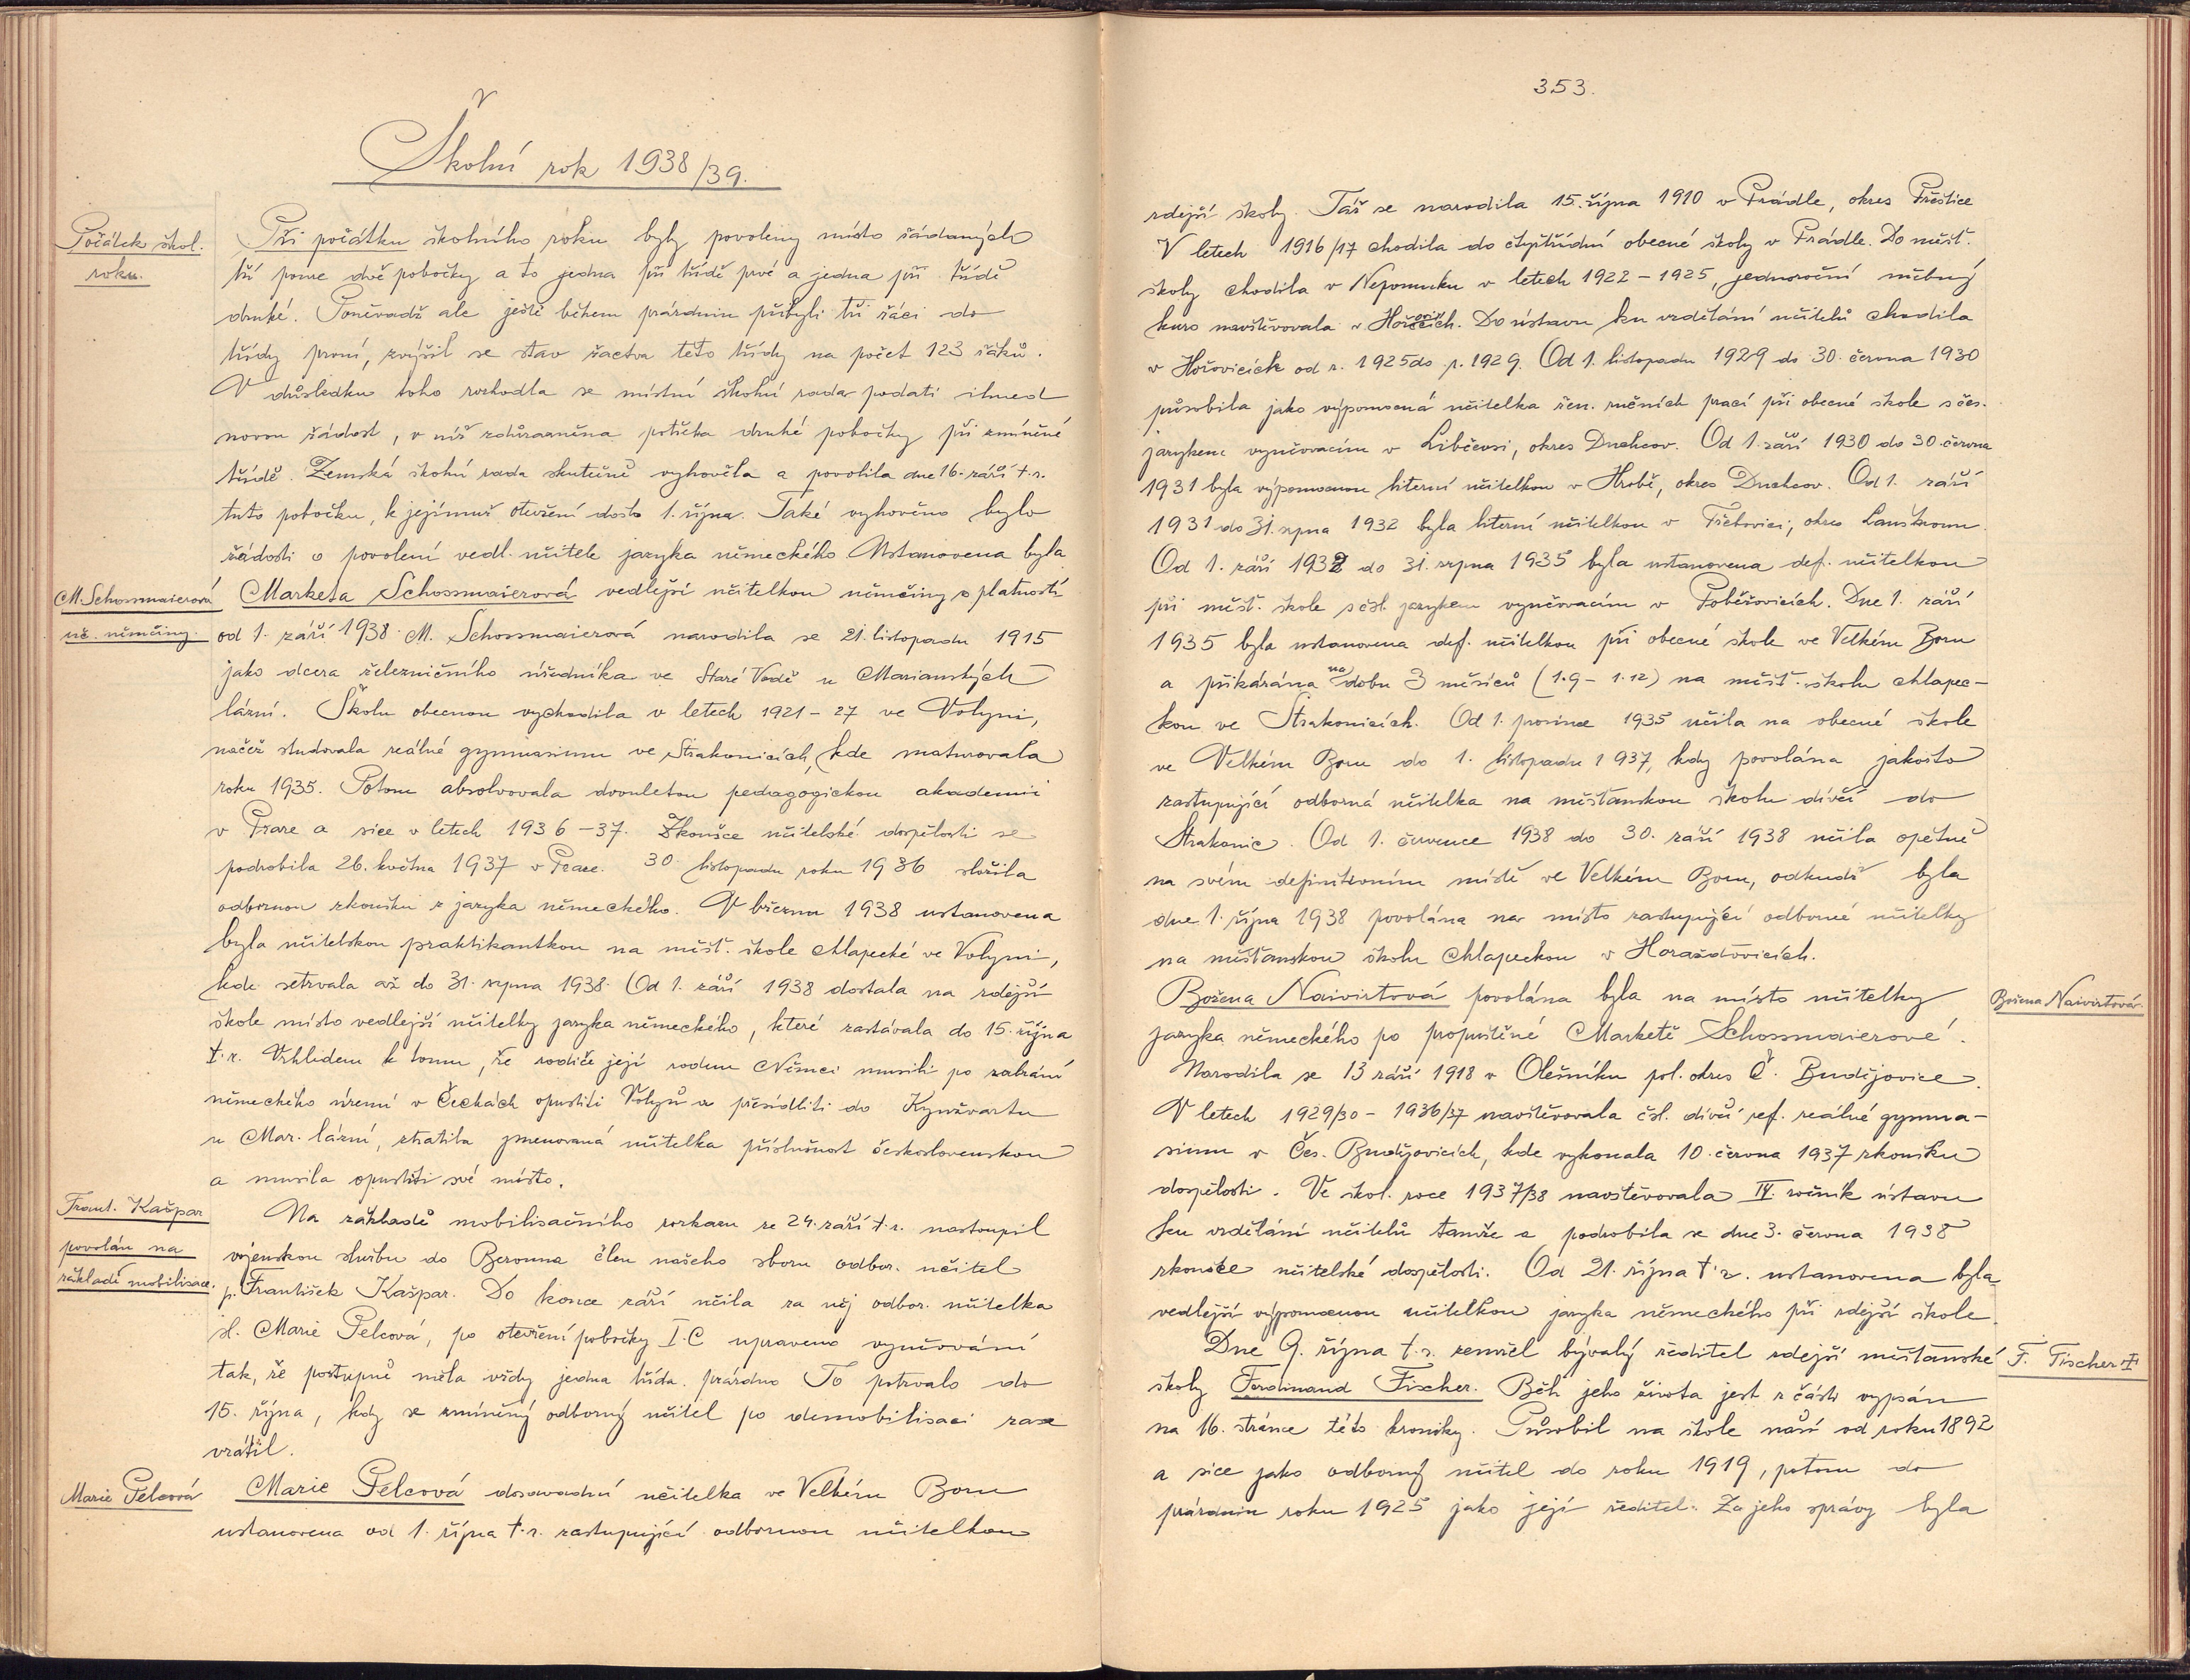 Školní rok 1938/39.
Počátek škol.
roku.
Při počátku školního roku byly povoleny místo žádaných
tří pouze dvě pobočky a to jedna při třídě prvé a jedna při třídě
druhé. Poněvadž ale ještě během prázdnin přibyli tři žáci do
třídy první, zvýšil se stav žactva této třídy na počet 123 žáků.
V důsledku toho rozhodla se místní školní rada podati ihned
novou žádost, v níž zdůrazněna potřeba druhé pobočky při zmíněné
třídě. Zemská školní rada skutečně vyhověla a povolila dne 16. září t.r.
tuto pobočku, k jejímuž otevření došlo 1. října. Také vyhověno bylo
žádosti o povolení vedl. učitele jazyka německého. Ustanovena byla
M. Schossmaierová
uč. němčiny.
Marketa Schossmaierová vedlejší učitelkou němčiny s platností
od 1. září 1938. M. Schossmaierová narodila se 21. listopadu 1915
jako dcera železničního úředníka ve Staré Vodě u Marianských
lázní. Školu obecnou vychodila v letech 1921 - 27 ve Volyni,
načež studovala reálné gymnasium ve Strakonicích, kde maturovala
roku 1935. Potom absolvovala dvouletou pedagogickou akademii
v Praze a sice v letech 1936 - 37. Zkoušce učitelské dospělosti se
podrobila 26. května 1937 v Praze. 30. listopadu roku 1936 složila
odbornou zkoušku z jazyka německého. V březnu 1938 ustanovena
byla učitelskou praktikantkou na měšť. škole chlapecké ve Volyni,
kde setrvala až do 31. srpna 1938. Od 1. září 1938 dostala na zdejší
škole místo vedlejší učitelky jazyka německého, které zastávala do 15. října
t.r. Vzhledem k tomu, že rodiče její rodem Němci musili po zabrání
německého území v Čechách opustiti Volyň a přesídliti do Kynžvartu
u Mar. lázní, ztratila jmenovaná učitelka příslušnost československou
a musila opustiti své místo.
Frant. Kašpar
povolán na
základě mobilisace.
Na základě mobilisačního rozkazu ze 24. září t.r. nastoupil
vojenskou službu do Berouna člen našeho sboru odbor. učitel
p. František Kašpar. Do konce září učila za něj odbor. učitelka
sl. Marie Pelcová, po otevření pobočky I.C upraveno vyučování
tak, že postupně měla vždy jedna třída prázdno. To potrvalo do
15. října, kdy se zmíněný odborný učitel po demobilisaci zase
vrátil.
Marie Pelcová
Marie Pelcová dosavadní učitelka ve Velkém Boru
ustanovena od 1. října t.r. zastupující odbornou učitelkou
353.
zdejší školy. Táž se narodila 15. října 1910 v Prádle, okres Přeštice
V letech 1916/17 chodila do čtyřtřídní obecné školy v Prádle. Do měšť.
školy chodila v Nepomuku v letech 1922 - 1925, jednoroční učebný
kurs navštěvovala v Hořovicích. Do ústavu ku vzdělání učitelů chodila
v Hořovicích od r. 1925 do r. 1929. Od 1. listopadu 1929 do 30. června 1930
působila jako výpomocná učitelka žen. ručních prací při obecné škole s čes.
jazykem vyučovacím v Libčevsi, okres Duchcov. Od 1. září 1930 do 30. června
1931 byla výpomocnou literní učitelkou v Hrobě, okres Duchcov. Od 1. září
1931 do 31. srpna 1932 byla literní učitelkou v Třebovici, okres Lanškroun.
Od 1. září 1932 do 31. srpna 1935 byla ustanovena def. učitelkou
při měšť. škole s čsl. jazykem vyučovacím v Poběžovicích. Dne 1. září
1935 byla ustanovena def. učitelkou při obecné škole ve Velkém Boru
a přikázána na dobu 3 měsíců (1.9 - 1.12) na měšť. školu chlapec-
kou ve Strakonicích. Od 1. prosince 1935 učila na obecné škole
ve Velkém Boru do 1. listopadu 1937, kdy povolána jakožto
zastupující odborná učitelka na měšťanskou školu dívčí do
Strakonic. Od 1. července 1938 do 30. září 1938 učila opětně
na svém definitivním místě ve Velkém Boru, odkudž byla
dne 1. října 1938 povolána na místo zastupující odborné učitelky
na měšťanskou školu chlapeckou v Horažďovicích.
Božena Naivirtová povolána byla na místo učitelky
Božena Naivirtová.
jazyka německého po propuštěné Marketě Schossmaierové.
Narodila se 13 září 1918 v Olešníku pol. okres Č. Budějovice.
V letech 1929/30 - 1936/37 navštěvovala čsl. dívčí ref. reálné gymna-
sium v Čes. Budějovicích, kde vykonala 10. června 1937 zkoušku
dospělosti. Ve škol. roce 1937/38 navštěvovala IV. ročník ústavu
ku vzdělání učitelů tamže a podrobila se dne 3. června 1938
zkoušce učitelské dospělosti. Od 21. října t.r. ustanovena byla
vedlejší výpomocnou učitelkou jazyka německého při zdejší škole.
Dne 9. října t.r. zemřel bývalý ředitel zdejší měšťanské
F. Fischer †
školy Ferdinand Fischer. Běh jeho života jest z části vypsán
na 16. stránce této kroniky. Působil na škole naší od roku 1892
a sice jako odborný učitel do roku 1919, potom do
prázdnin roku 1925 jako její ředitel. Za jeho správy byla